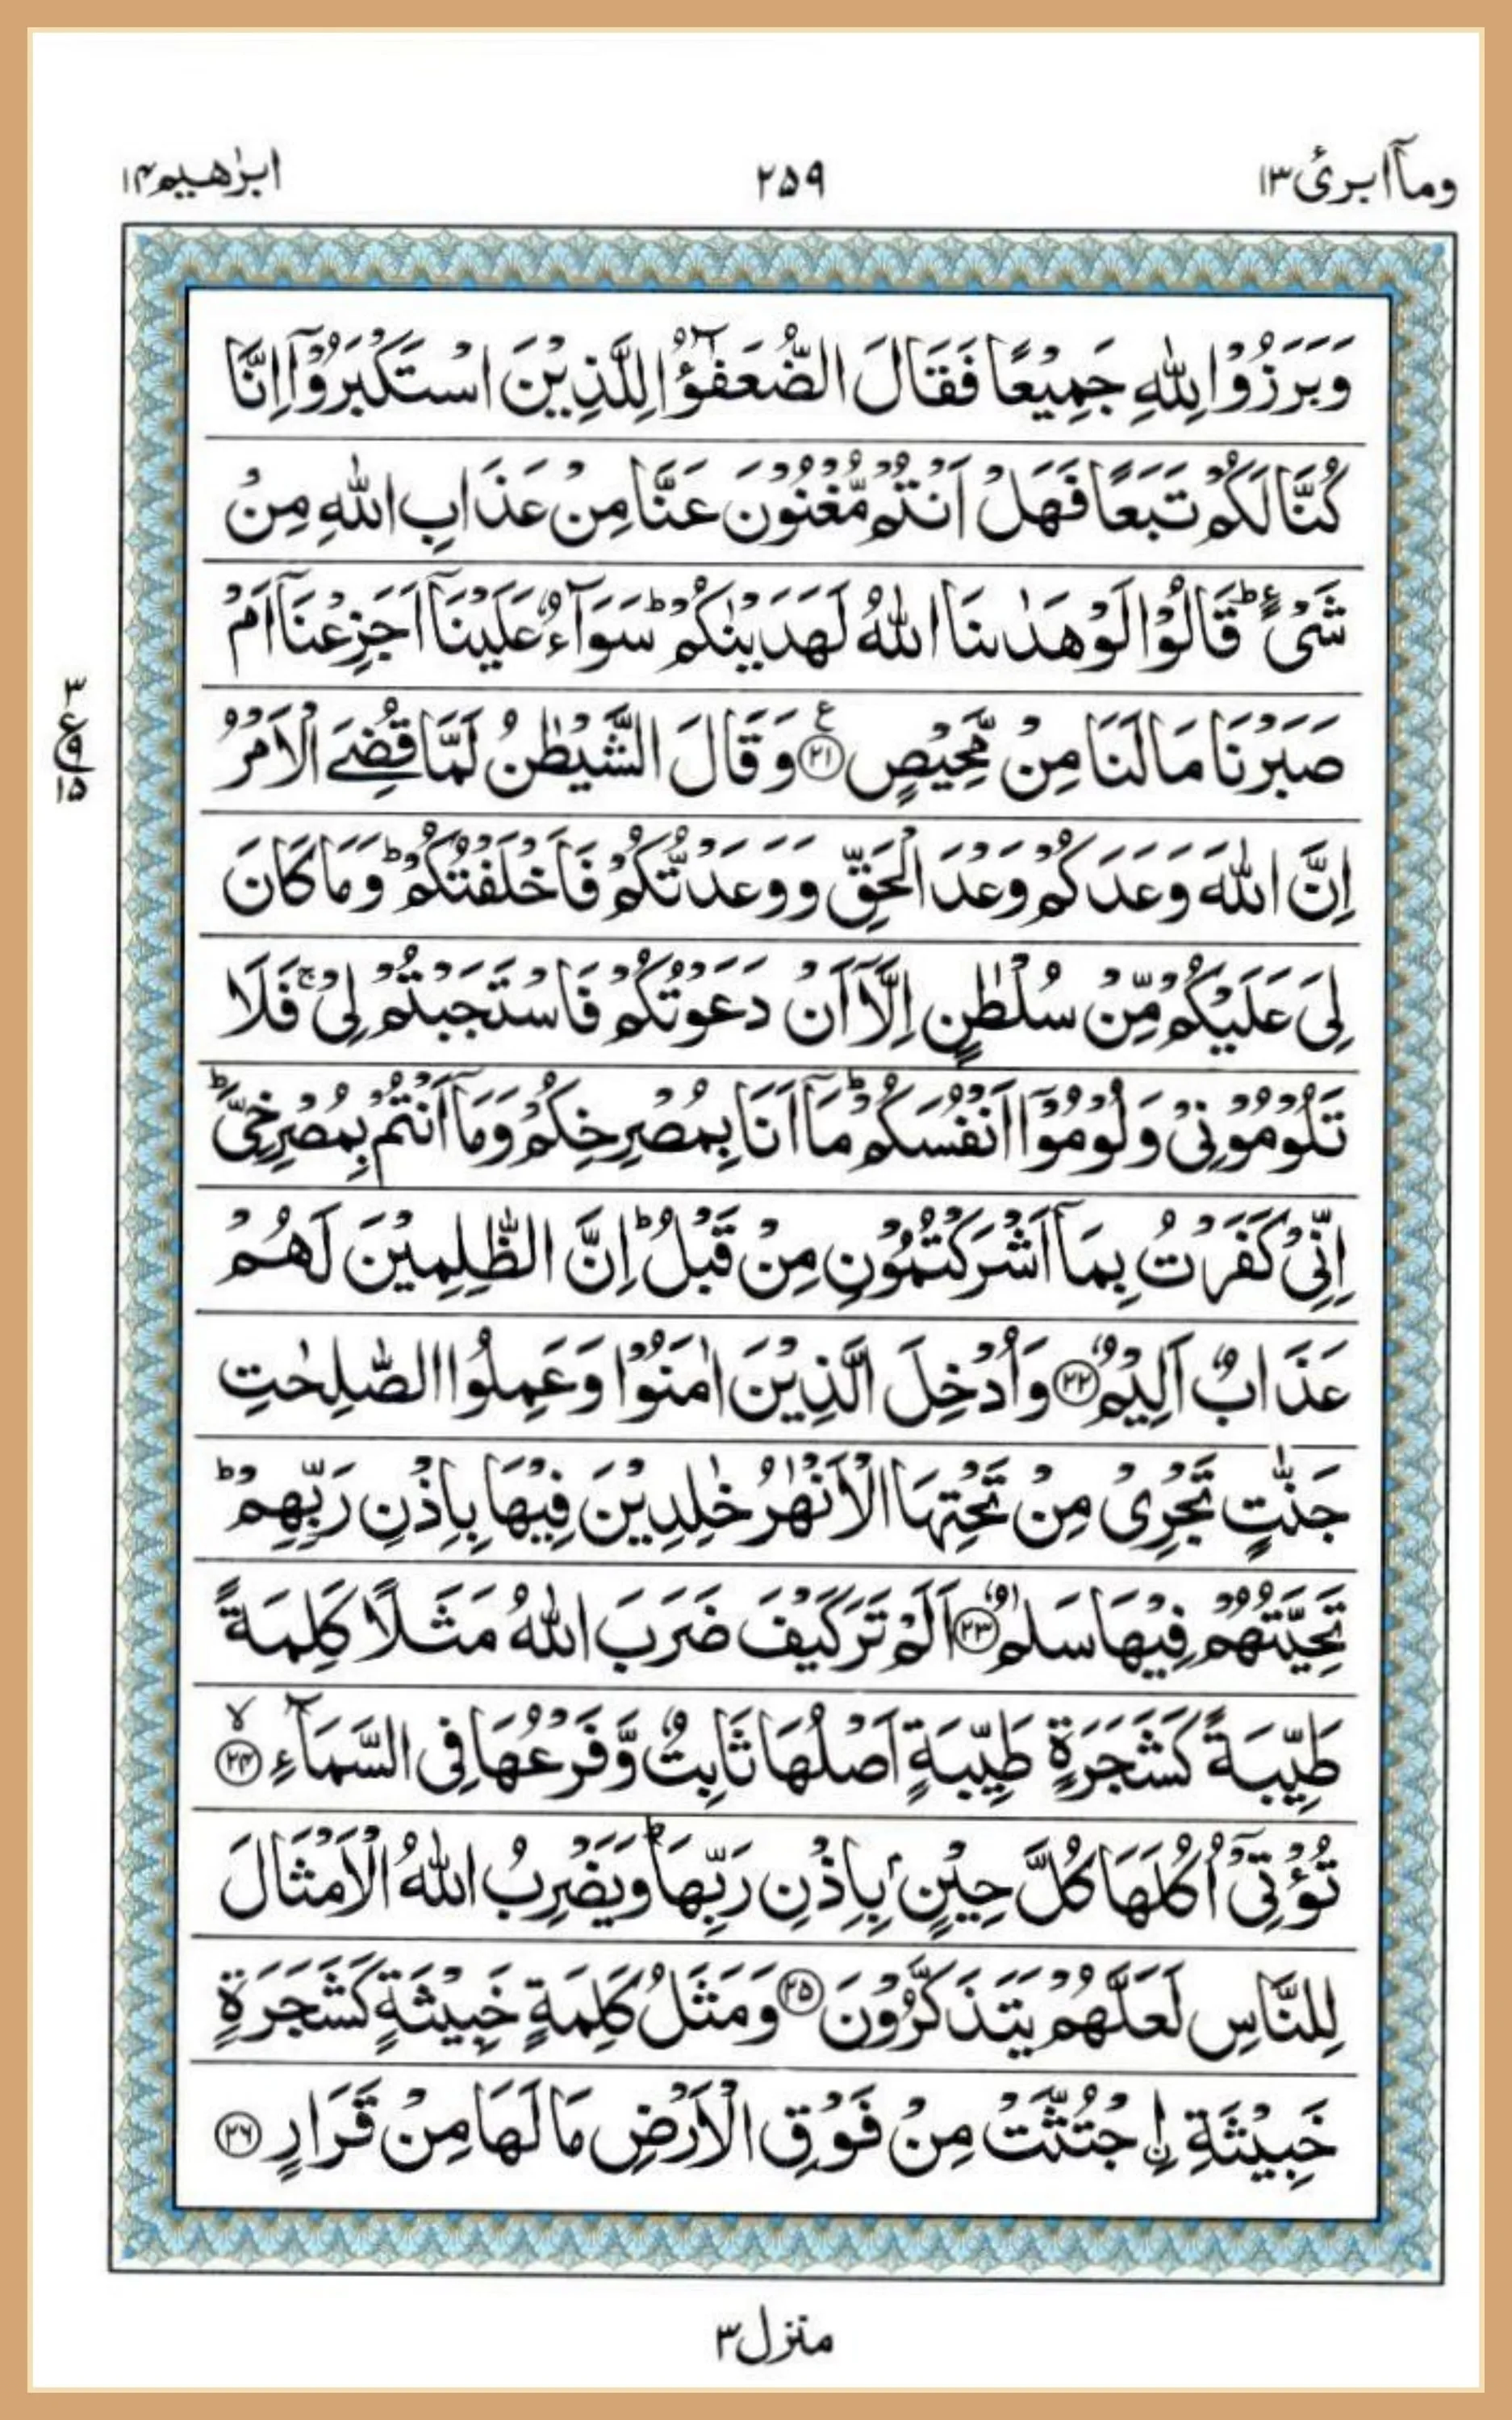 وماۤ ابرئ ١٣
٢٥٩
ابرٰهيم ١٤
وَبَرَزُوْا لِلّٰهِ جَمِيْعًا فَقَالَ الضُّعَفٰٓؤُا لِلَّذِيْنَ اسْتَكْبَرُوْۤا اِنَّا
كُنَّا لَكُمْ تَبَعًا فَهَلْ اَنْتُمْ مُّغْنُوْنَ عَنَّا مِنْ عَذَابِ اللّٰهِ مِنْ
شَىْءٍ ؕ قَالُوْا لَوْ هَدٰٮنَا اللّٰهُ لَهَدَيْنٰكُمْ ؕ سَوَآءٌ عَلَيْنَاۤ اَجَزِعْنَاۤ اَمْ
صَبَرْنَا مَا لَنَا مِنْ مَّحِيْصٍ ۟﴿٢١﴾ وَقَالَ الشَّيْطٰنُ لَمَّا قُضِىَ الْاَمْرُ
٣
ع
٩
١٥
اِنَّ اللّٰهَ وَعَدَكُمْ وَعْدَ الْحَقِّ وَوَعَدْتُّكُمْ فَاَخْلَفْتُكُمْ ؕ وَمَا كَانَ
لِىَ عَلَيْكُمْ مِّنْ سُلْطٰنٍ اِلَّاۤ اَنْ دَعَوْتُكُمْ فَاسْتَجَبْتُمْ لِىْ ۚ فَلَا
تَلُوْمُوْنِىْ وَلُوْمُوْۤا اَنْفُسَكُمْ ؕ مَاۤ اَنَا بِمُصْرِخِكُمْ وَمَاۤ اَنْتُمْ بِمُصْرِخِىَّ ؕ
اِنِّىْ كَفَرْتُ بِمَاۤ اَشْرَكْتُمُوْنِ مِنْ قَبْلُ ؕ اِنَّ الظّٰلِمِيْنَ لَهُمْ
عَذَابٌ اَلِيْمٌ ﴿٢٢﴾ وَاُدْخِلَ الَّذِيْنَ اٰمَنُوْا وَعَمِلُوا الصّٰلِحٰتِ
جَنّٰتٍ تَجْرِىْ مِنْ تَحْتِهَا الْاَنْهٰرُ خٰلِدِيْنَ فِيْهَا بِاِذْنِ رَبِّهِمْ ؕ
تَحِيَّتُهُمْ فِيْهَا سَلٰمٌ ﴿٢٣﴾ اَلَمْ تَرَ كَيْفَ ضَرَبَ اللّٰهُ مَثَلًا كَلِمَةً
طَيِّبَةً كَشَجَرَةٍ طَيِّبَةٍ اَصْلُهَا ثَابِتٌ وَّفَرْعُهَا فِى السَّمَآءِ ۙ﴿٢٤﴾
تُؤْتِىْۤ اُكُلَهَا كُلَّ حِيْنٍۢ بِاِذْنِ رَبِّهَا ؕ وَيَضْرِبُ اللّٰهُ الْاَمْثَالَ
لِلنَّاسِ لَعَلَّهُمْ يَتَذَكَّرُوْنَ ﴿٢٥﴾ وَمَثَلُ كَلِمَةٍ خَبِيْثَةٍ كَشَجَرَةٍ
خَبِيْثَةِ ۨاجْتُثَّتْ مِنْ فَوْقِ الْاَرْضِ مَا لَهَا مِنْ قَرَارٍ ﴿٢٦﴾
منزل ٣